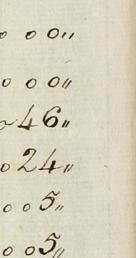 o o o"
o o o"
~46"
o 24"
o o 5"
o o 5"